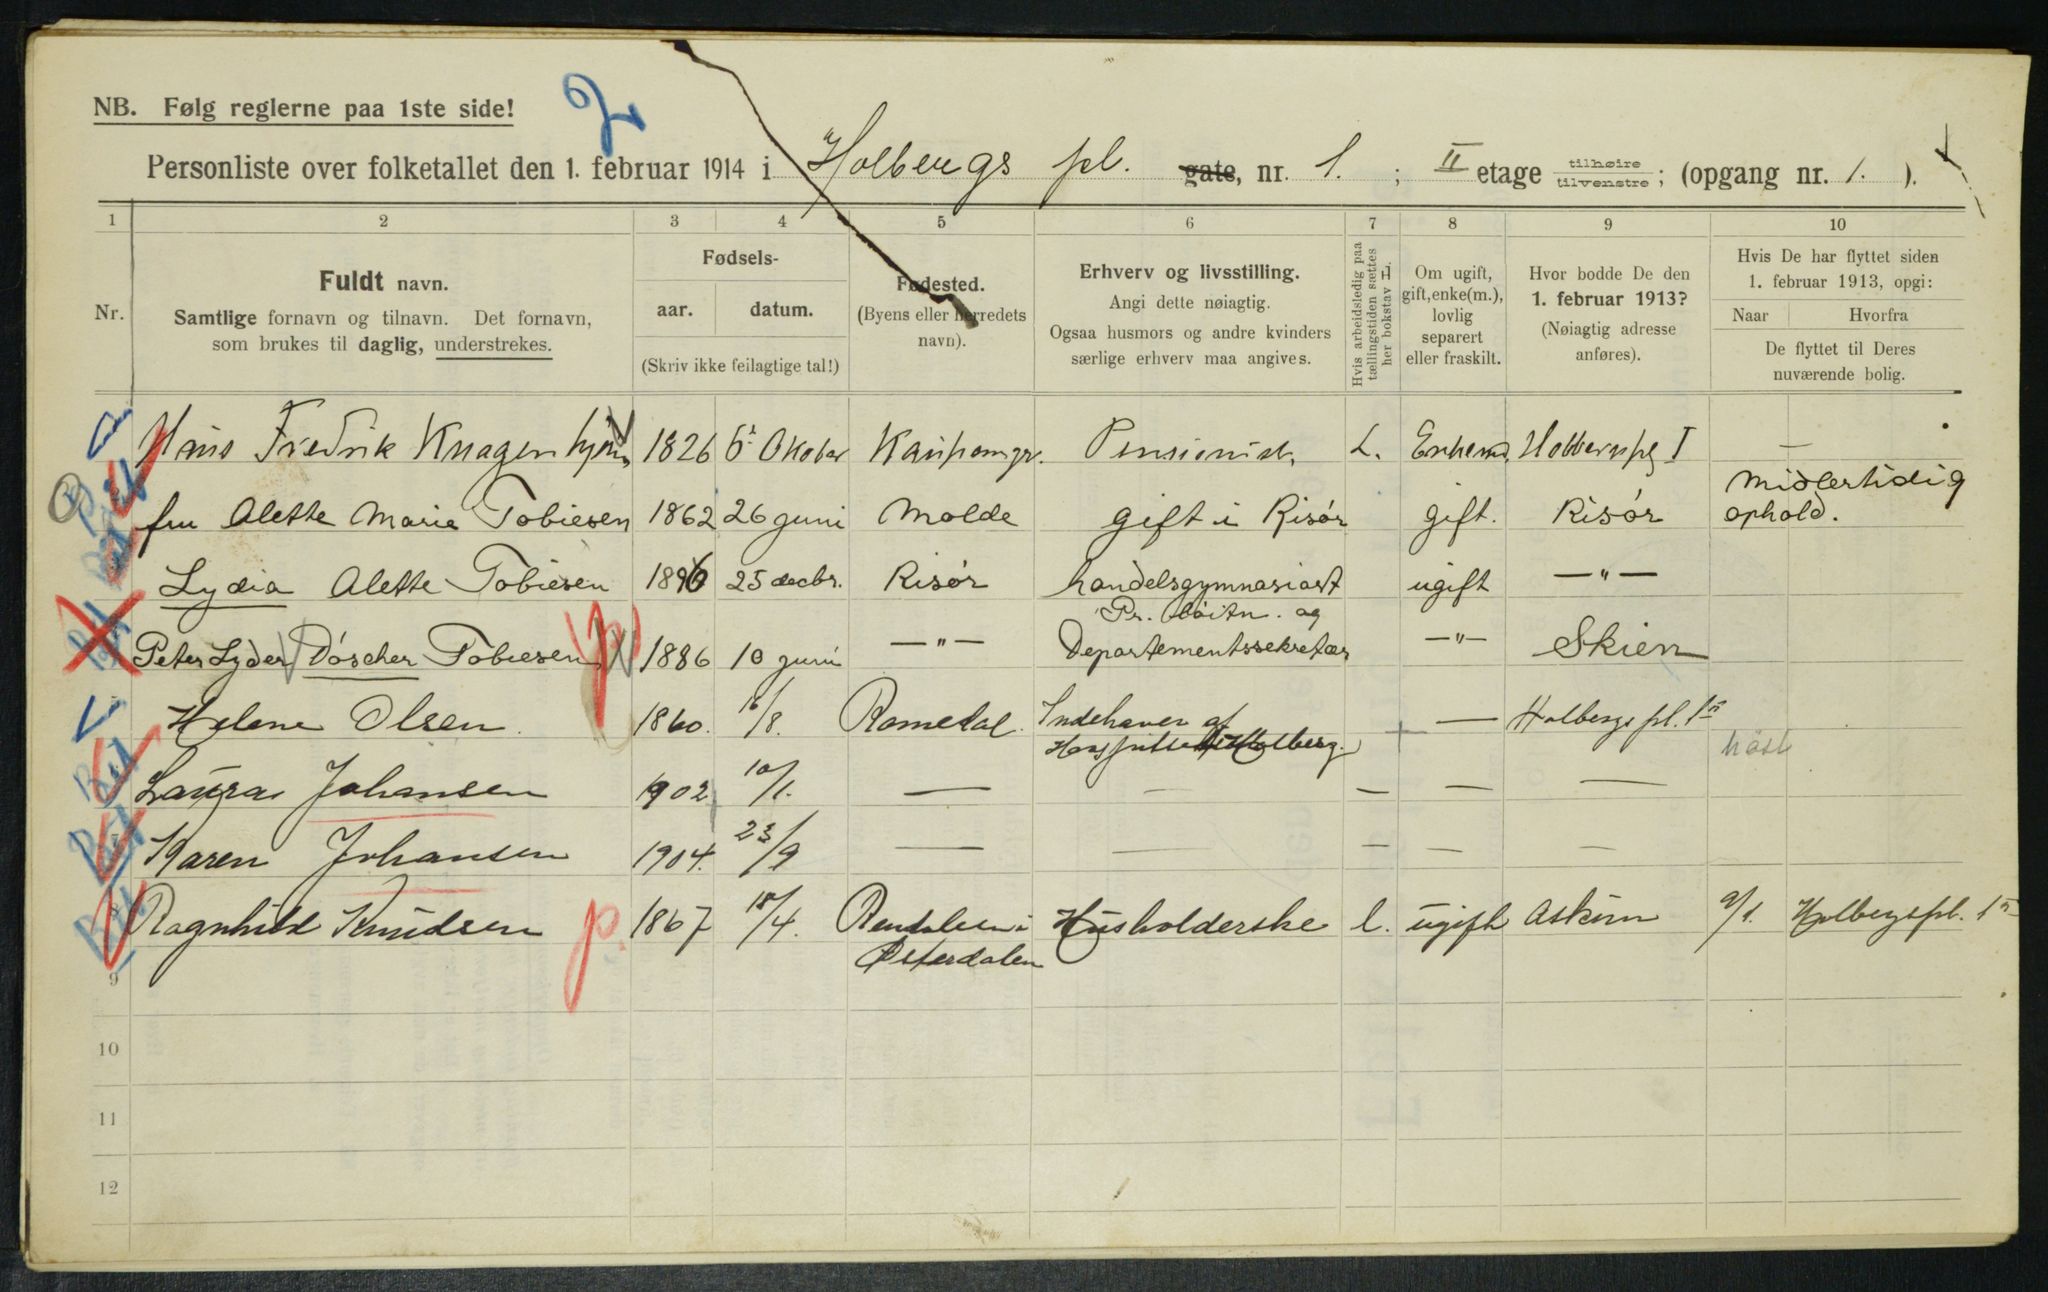 NB. Følg reglerne paa 1ste side!
2
Personliste over folketallet den 1. februar 1914 i Holbergs pl. gate, nr. 1. ; II etage tilhøire tilvenstre ; (opgang nr. 1. ).
1 2 3 4 5 6 7 8 9 10
Nr.
Fuldt navn.
Samtlige fornavn og tilnavn. Det fornavn,
som brukes til daglig, understrekes.
Fødsels-
aar. datum.
(Skriv ikke feilagtige tal!)
Fødested.
(Byens eller herredets
navn).
Erhverv og livsstilling.
Angi dette nøiagtig.
Ogsaa husmors og andre kvinders
særlige erhverv maa angives.
Hvis arbeidsledig paa
tællingstiden settes
her bokstav L.
Om ugift,
gift, enke(m.),
lovlig
separert
eller fraskilt.
Hvor bodde De den
1. februar 1913?
(Nøiagtig adresse
anføres).
Hvis De har flyttet siden
1. februar 1913, opgi:
Naar Hvorfra
De flyttet til Deres
nuværende bolig.
Hans Fredrik Knagenhjelm 1826 6 Oktober Kaupanger. Pensionist. L. Enkemd. Holbergspl I —
fru Alette Marie Tobiesen 1862 26 juni Molde gift i Risør gift. Risør Midlertidig ophold.
Lydia Alette Tobiesen 1896 25 decbr. Risør handelsgymnasiast ugift —"—
Peter Lyder Döscher Tobiesen 1886 10 juni —"— Pr. löitn. og Departementssekretær —"— Skien
Helene Olsen. 1860. 16/8. Romedal. Indehaver af Hospitset Holberg. — Holbergs pl. 1
Laura Johansen 1902 10/1. — — — — —
Karen Johansen 1904. 23/9 — — — — —
Ragnhild Knudsen p. 1867 18/4. Rendalen i Østerdalen Husholderske l. ugift Askim 9/1. Holbergspl. 1
9
10
11
12